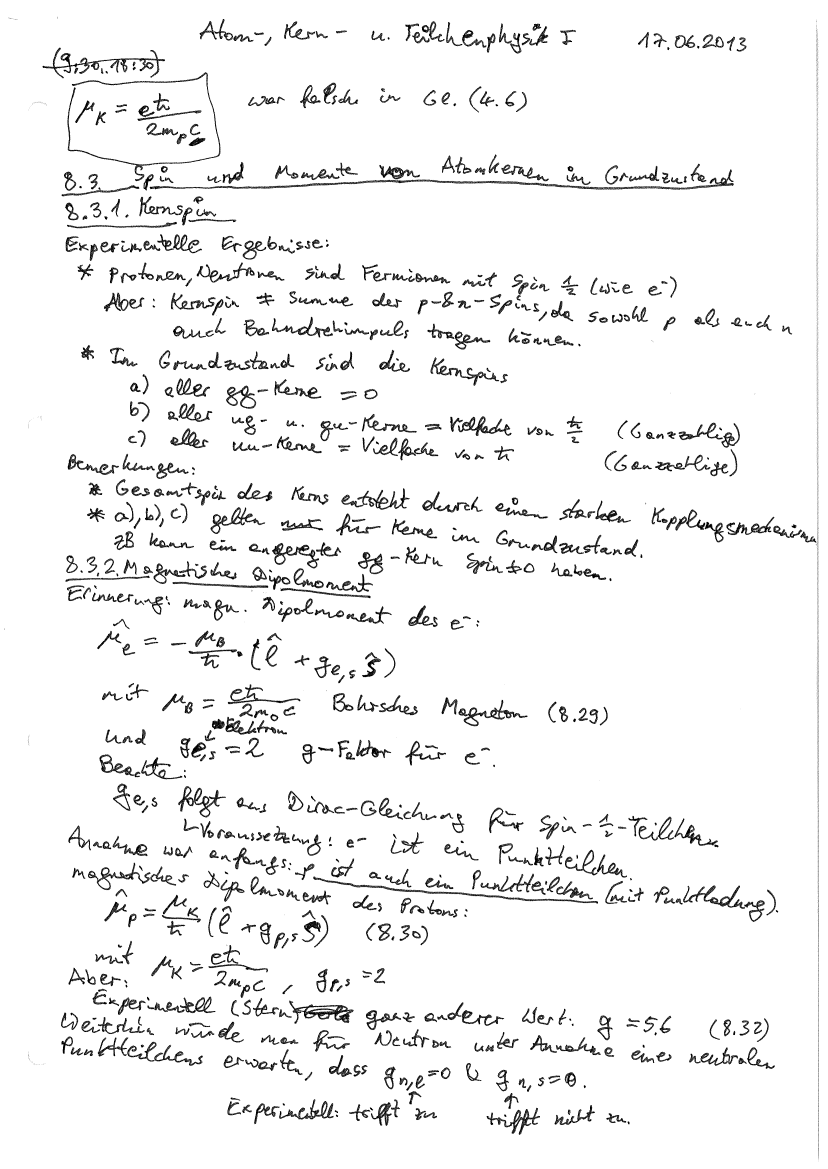 Atom-, Kern- u. Teilchenphysik I 17.06.2013
(9:30..18:30)
μ_K = eħ/2m_pc war falsch in Gl. (4.6)
8.3. Spin und Momente von Atomkernen im Grundzustand
8.3.1. Kernspin
Experimentelle Ergebnisse:
* Protonen, Neutronen sind Fermionen mit Spin 1/2 (wie e⁻)
Aber: Kernspin ≠ Summe der p-&n-Spins, da sowohl p als auch n
auch Bahndrehimpuls tragen können.
* Im Grundzustand sind die Kernspins
a) aller gg-Kerne = 0
b) aller ug- u. gu-Kerne = Vielfache von ħ/2 (Ganzzahlige)
c) aller uu-Kerne = Vielfache von ħ (Ganzzahlige)
Bemerkungen:
* Gesamtspin des Kerns entsteht durch einen starken Kopplungsmechanismu
* a), b), c) gelten nur für Kerne im Grundzustand.
zB kann ein angeregter gg-Kern Spin ≠ 0 haben.
8.3.2. Magnetisches Dipolmoment
Erinnerung: magn. Dipolmoment des e⁻:
μ̂_e = - μ_B/ħ · (l̂ + g_e,s ŝ)
mit μ_B = eħ/2m₀c Bohrsches Magneton (8.29)
Elektron
und g_e,s = 2 g-Faktor für e⁻.
Beachte:
g_e,s folgt aus Dirac-Gleichung für Spin-1/2-Teilchen
↳Voraussetzung: e⁻ ist ein Punktteilchen.
Annahme war anfangs: p ist auch ein Punktteilchen (mit Punktladung).
magnetisches Dipolmoment des Protons:
μ̂_p = μ_K/ħ (l̂ + g_p,s ŝ) (8.30)
mit μ_K = eħ/2m_pc, g_p,s = 2
Aber:
Experimentell (Stern) ganz anderer Wert: g = 5.6 (8.32)
Weiterhin würde man für Neutron unter Annahme eines neutralen
Punktteilchens erwarten, dass g_n,l = 0 & g_n,s = 0.
Experimentell: trifft ↑ zu ↑ trifft nicht zu.